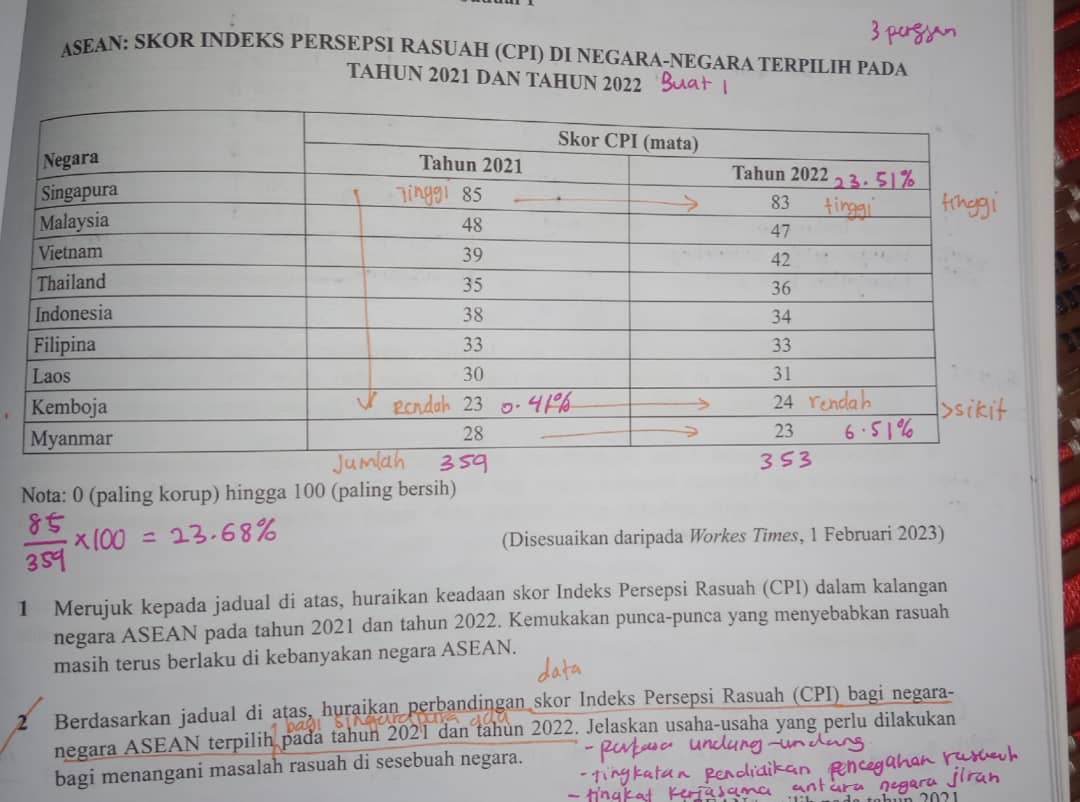 3 perggan
ASEAN: SKOR INDEKS PERSEPSI RASUAH (CPI) DI NEGARA-NEGARA TERPILIH PADA
TAHUN 2021 DAN TAHUN 2022 Buat 1
Negara
Skor CPI (mata)
Tahun 2021 Tahun 2022 23.51%
Singapura Tinggi 85 83 tinggi tinggi
Malaysia 48 47
Vietnam 39 42
Thailand 35 36
Indonesia 38 34
Filipina 33 33
Laos 30 31
Kemboja rendah 23 0.41% 24 rendah >sikit
Myanmar 28 23 6.51%
Jumlah 359 353
Nota: 0 (paling korup) hingga 100 (paling bersih)
85/359 x100 = 23.68%
(Disesuaikan daripada Workes Times, 1 Februari 2023)
1 Merujuk kepada jadual di atas, huraikan keadaan skor Indeks Persepsi Rasuah (CPI) dalam kalangan
negara ASEAN pada tahun 2021 dan tahun 2022. Kemukakan punca-punca yang menyebabkan rasuah
masih terus berlaku di kebanyakan negara ASEAN.
data
2 Berdasarkan jadual di atas, huraikan perbandingan skor Indeks Persepsi Rasuah (CPI) bagi negara-
bagi Singapura ada
negara ASEAN terpilih pada tahun 2021 dan tahun 2022. Jelaskan usaha-usaha yang perlu dilakukan
bagi menangani masalah rasuah di sesebuah negara.
- undang-undang
- tingkatan pendidikan pencegahan rasuah
- tingkat kerjasama antara negara jiran
tahun 2021